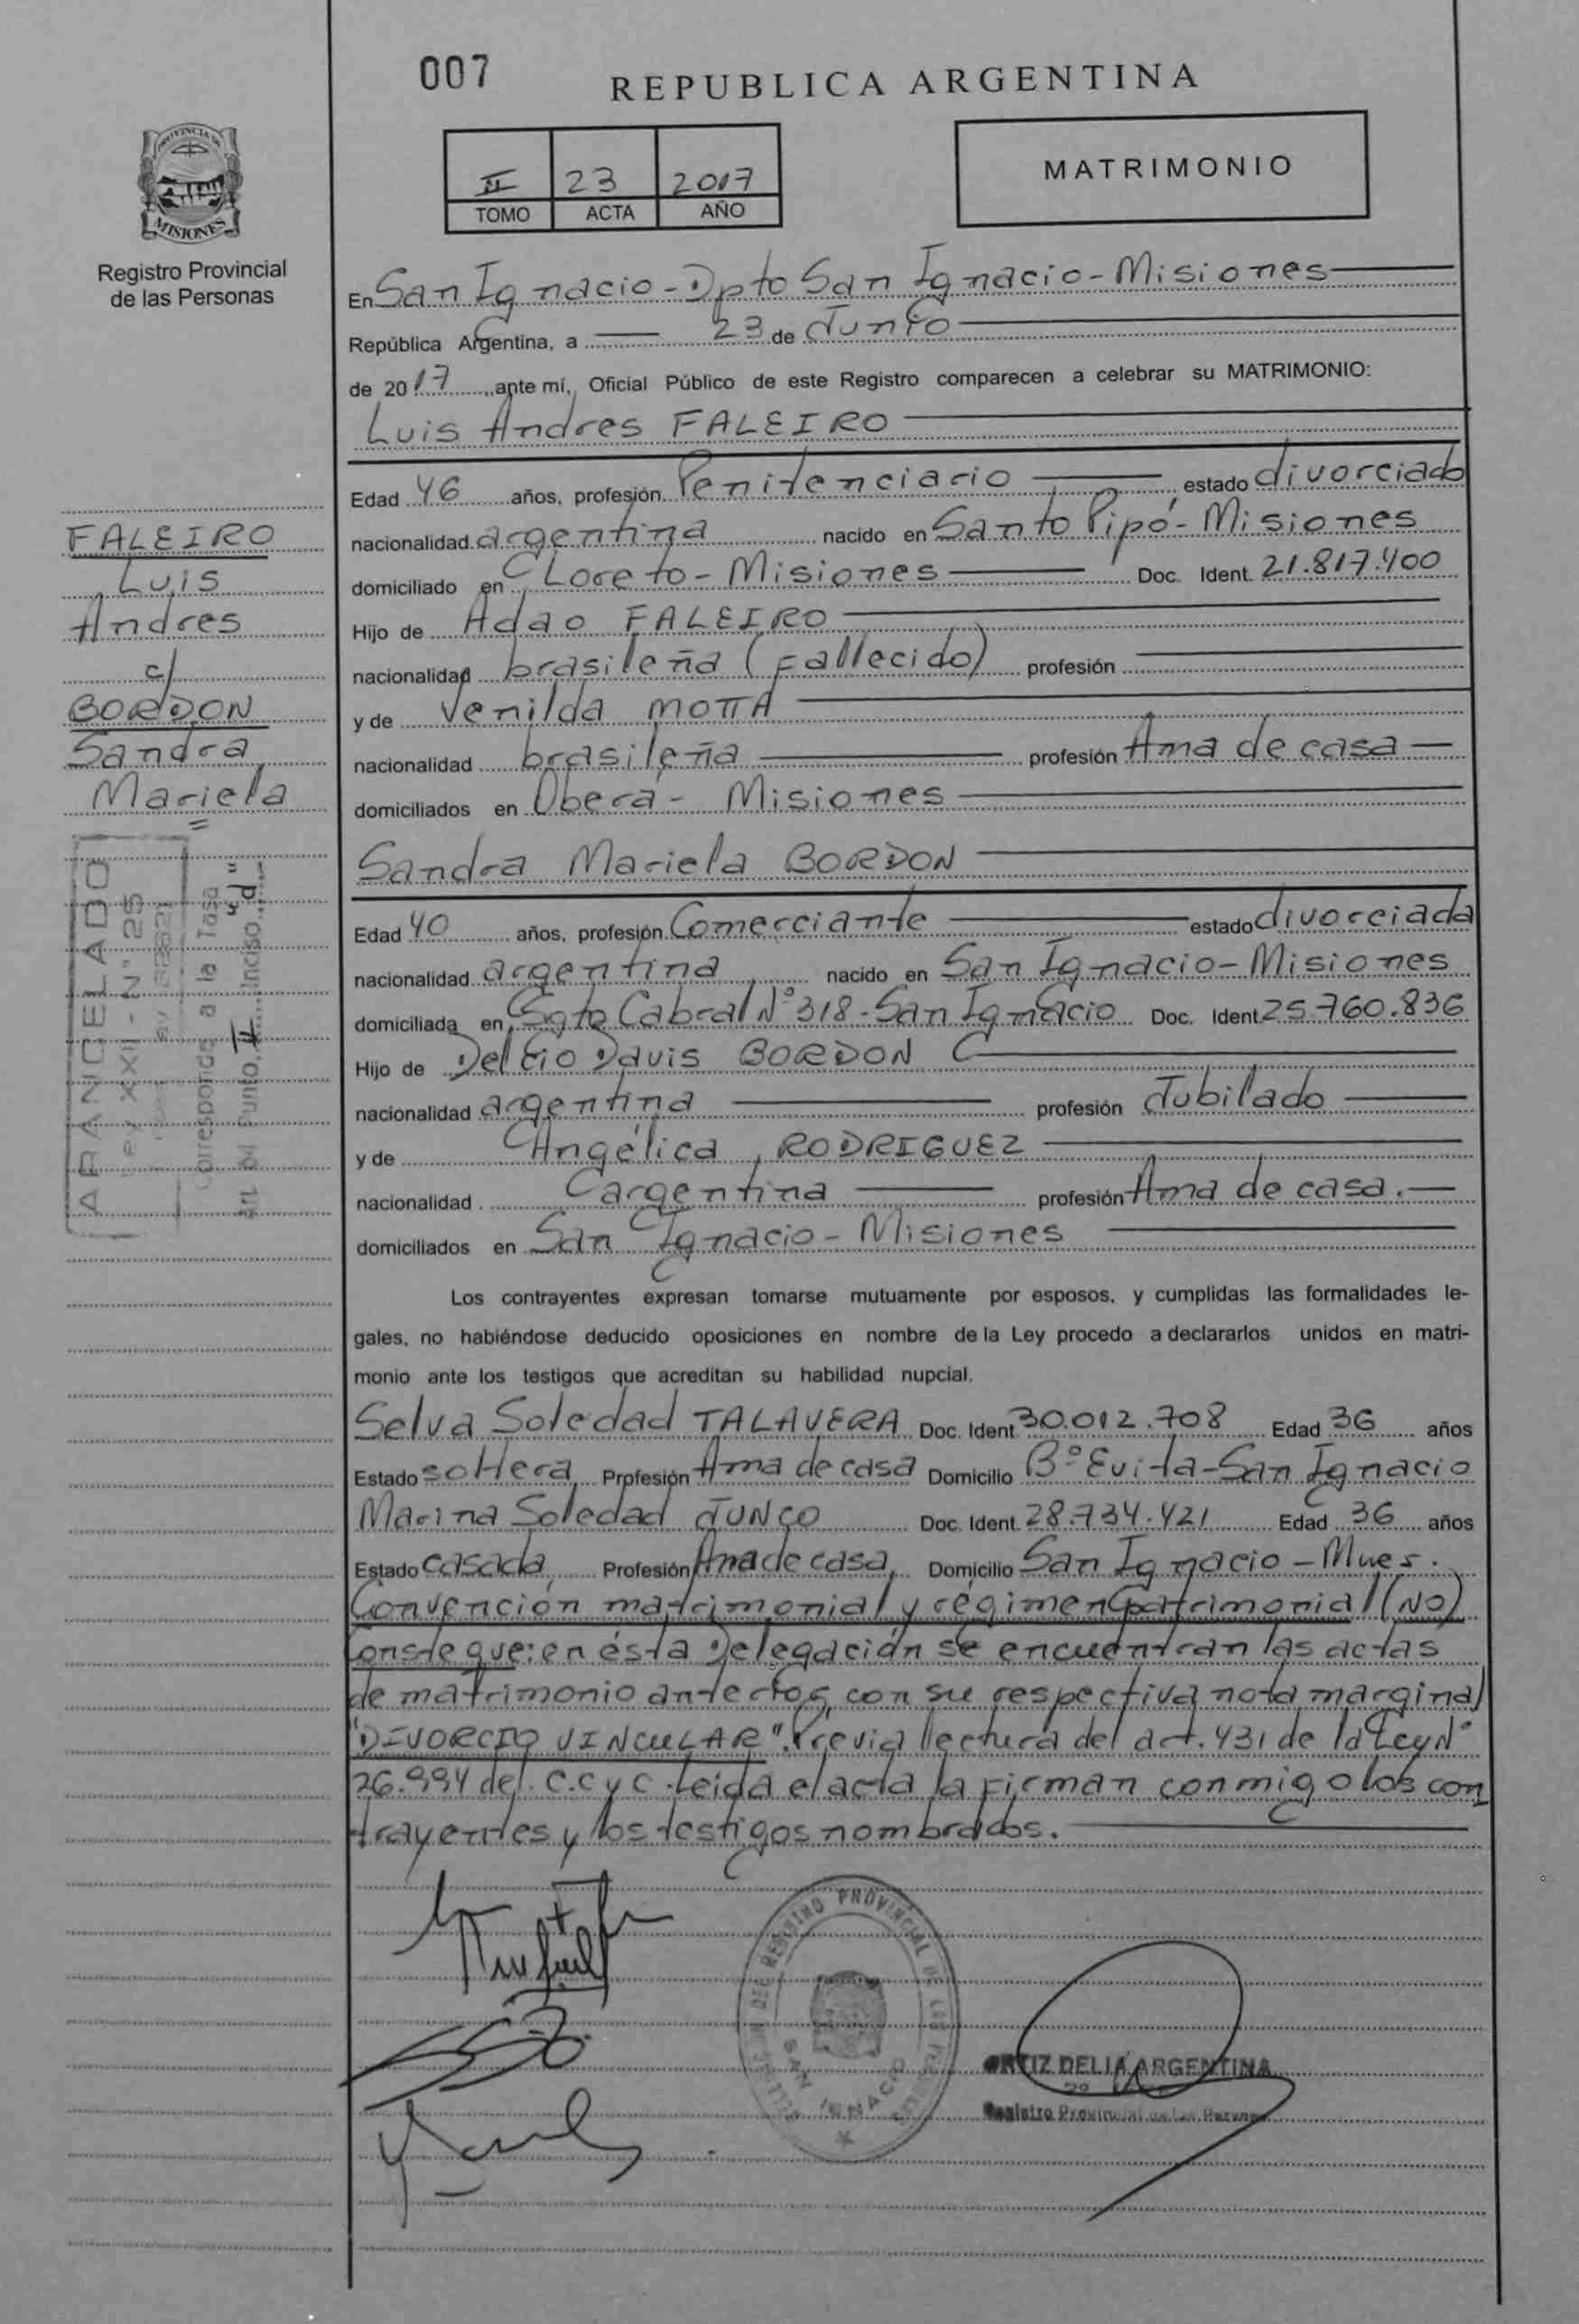 007
REPUBLICA ARGENTINA
PROVINCIA DE
MISIONES
Registro Provincial
de las Personas
II 23 2017
TOMO ACTA AÑO
MATRIMONIO
En San Ignacio - Dpto San Ignacio - Misiones
República Argentina, a 23 de Junio
de 2017 ante mí, Oficial Público de este Registro comparecen a celebrar su MATRIMONIO:
Luis Andres FALEIRO
Edad 46 años, profesión Penitenciario estado divorciado
nacionalidad argentina nacido en Santo Pipó - Misiones
domiciliado en Loreto - Misiones Doc. Ident. 21.817.400
Hijo de Adao FALEIRO
nacionalidad brasileña (Fallecido) profesión
y de Venilda MOTTA
nacionalidad brasileña profesión Ama de casa
domiciliados en Oberá - Misiones
Sandra Mariela BORDON
Edad 40 años, profesión Comerciante estado divorciada
nacionalidad argentina nacido en San Ignacio - Misiones
domiciliada en Sgto Cabral N° 318 - San Ignacio Doc. Ident. 25.760.836
Hijo de Delfio Davis BORDON
nacionalidad argentina profesión Jubilado
y de Angélica RODRIGUEZ
nacionalidad argentina profesión Ama de casa.
domiciliados en San Ignacio - Misiones
Los contrayentes expresan tomarse mutuamente por esposos, y cumplidas las formalidades le-
gales, no habiéndose deducido oposiciones en nombre de la Ley procedo a declararlos unidos en matri-
monio ante los testigos que acreditan su habilidad nupcial.
Selva Soledad TALAVERA Doc. Ident. 30.012.708 Edad 36 años
Estado soltera Profesión Ama de casa Domicilio B° Evita - San Ignacio
Marina Soledad JUNCO Doc. Ident. 28.734.421 Edad 36 años
Estado casada, Profesión Ama de casa, Domicilio San Ignacio - Mnes.
Convención matrimonial y régimen patrimonial (NO)
Conste que: en ésta Delegación se encuentran las actas
de matrimonio con su respectiva nota marginal
"DIVORCIO VINCULAR". Previa lectura del art. 431 de la Ley N°
26.994 del C.C y C. Leida el acta la firman conmigo los con
trayentes y los testigos nombrados.
FALEIRO
Luis
Andres
c/
BORDON
Sandra
Mariela
ARANCELADO
Ley XXII - N° 25
Corresponde a la Tasa
Art. 04 Punto II Inciso "d"
DEL REGISTRO PROVINCIAL DE LAS
SAN IGNACIO
ORTIZ DELIA ARGENTINA
Registro Provincial de las Personas